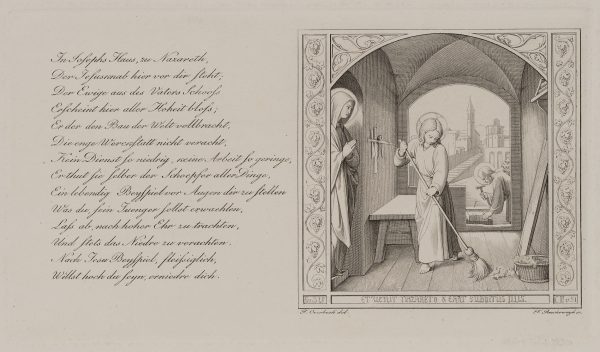 In Josephs Haus, zu Nazareth,
Der Jesusknab hier vor dir steht;
Der Ewige aus des Vaters Schooss
Erscheint hier aller Hoheit bloss;
Er der den Bau der Welt vollbracht,
Die enge Werckstatt nicht veracht,
Kein Dienst so niedrig, keine Arbeit so geringe,
Er thut sie selber der Schoepfer aller Dinge,
Ein lebendig Beyspiel vor Augen dir zu stellen
Was du sein Juenger sollst erwachten,
Lass ab, nach hoher Ehr zu trachten,
Und stets das Niedre zu verachten.
Nach Jesu Beyspiel, fleissiglich,
Willst hoch du seyn, ernieder dich.
ET VENIT NAZARETH & ERAT SUBDITUS ILLIS.
F. Overbeck del.